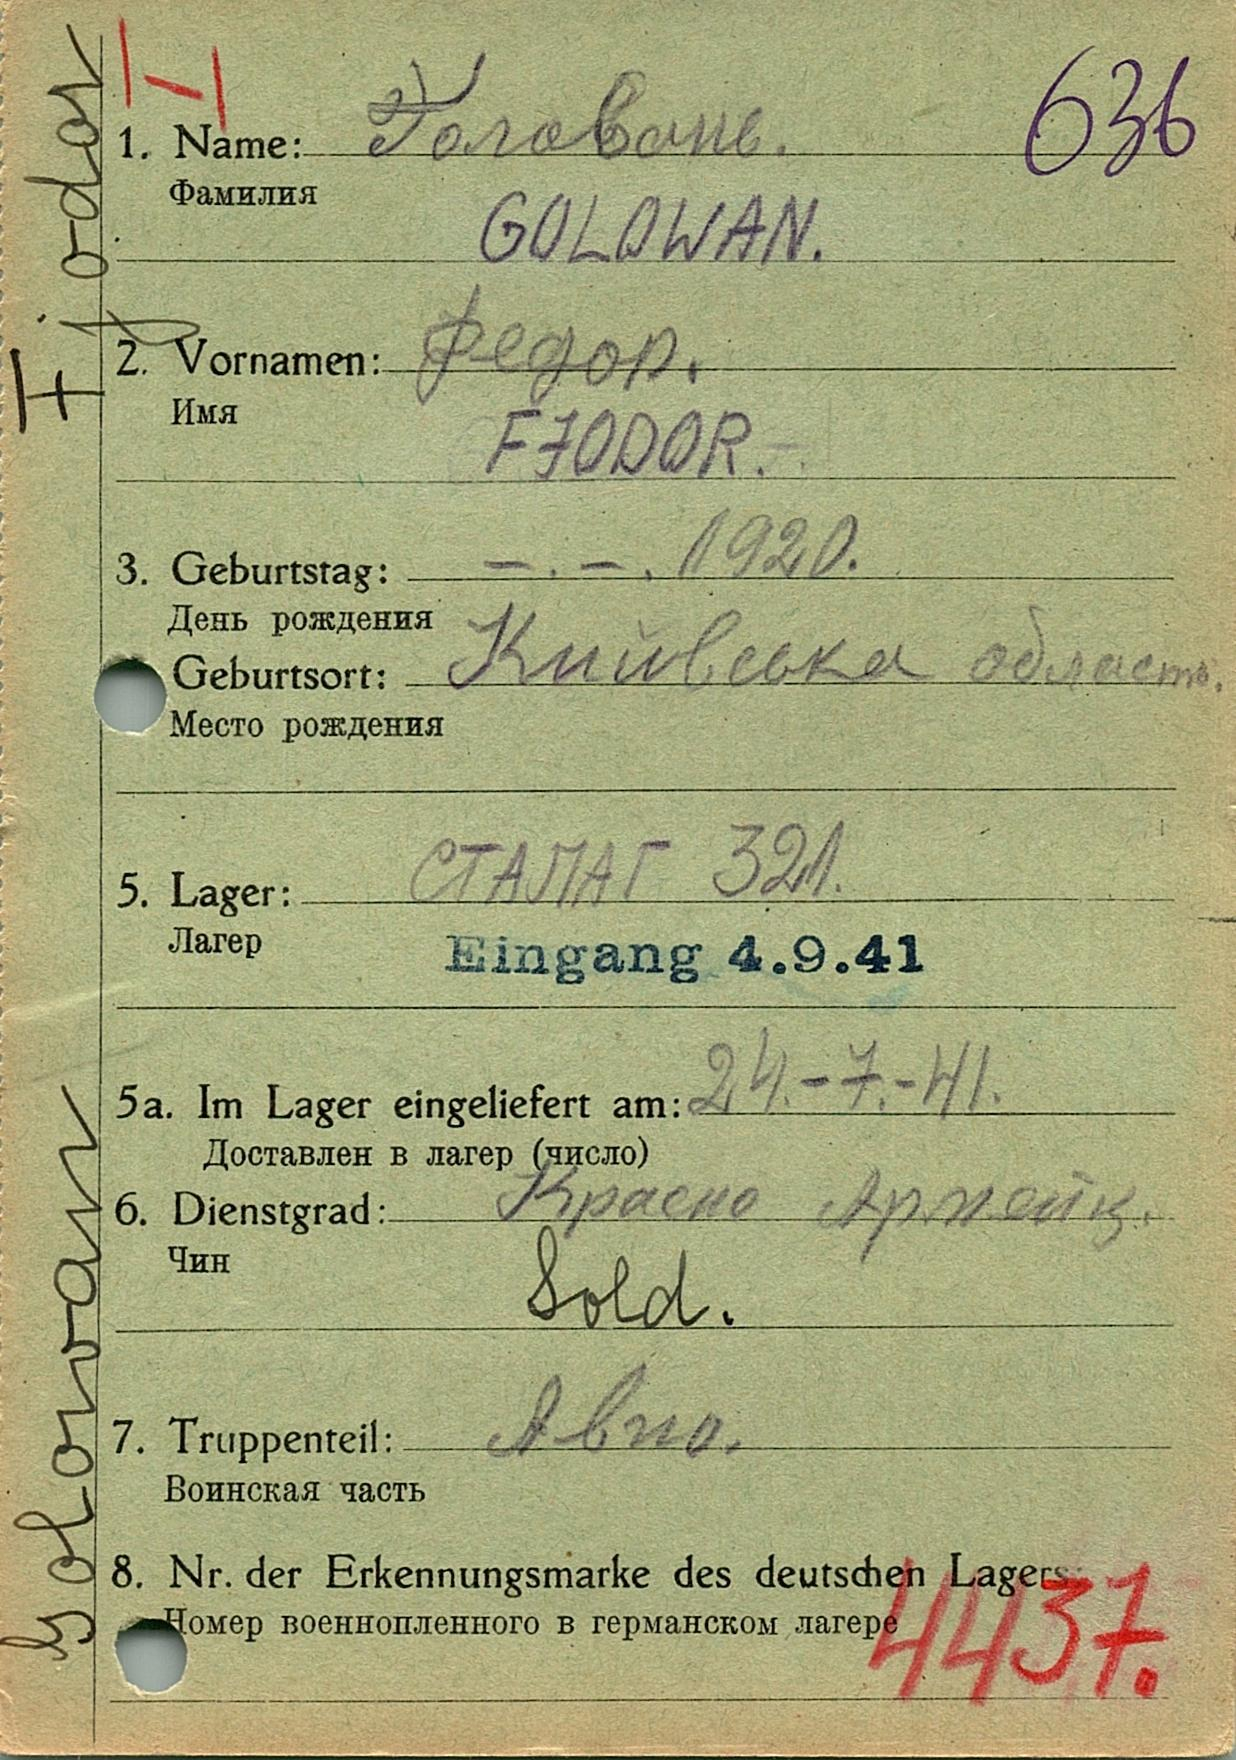 636
1. Name: Головань.
Фамилия
GOLOWAN.
2. Vornamen: Федор.
Имя
FJODOR.
3. Geburtstag: –.–.1920.
День рождения
Geburtsort: Київська область.
Место рождения
5. Lager: СТАЛАГ 321.
Лагер
Eingang 4.9.41
5a. Im Lager eingeliefert am: 24.-7.-41.
Доставлен в лагер (число)
6. Dienstgrad: Красно Армейц.
Чин
Sold.
7. Truppenteil:
Воинская часть
8. Nr. der Erkennungsmarke des deutschen Lagers:
Номер военнопленного в германском лагере
4437.
Golowan Fjodor